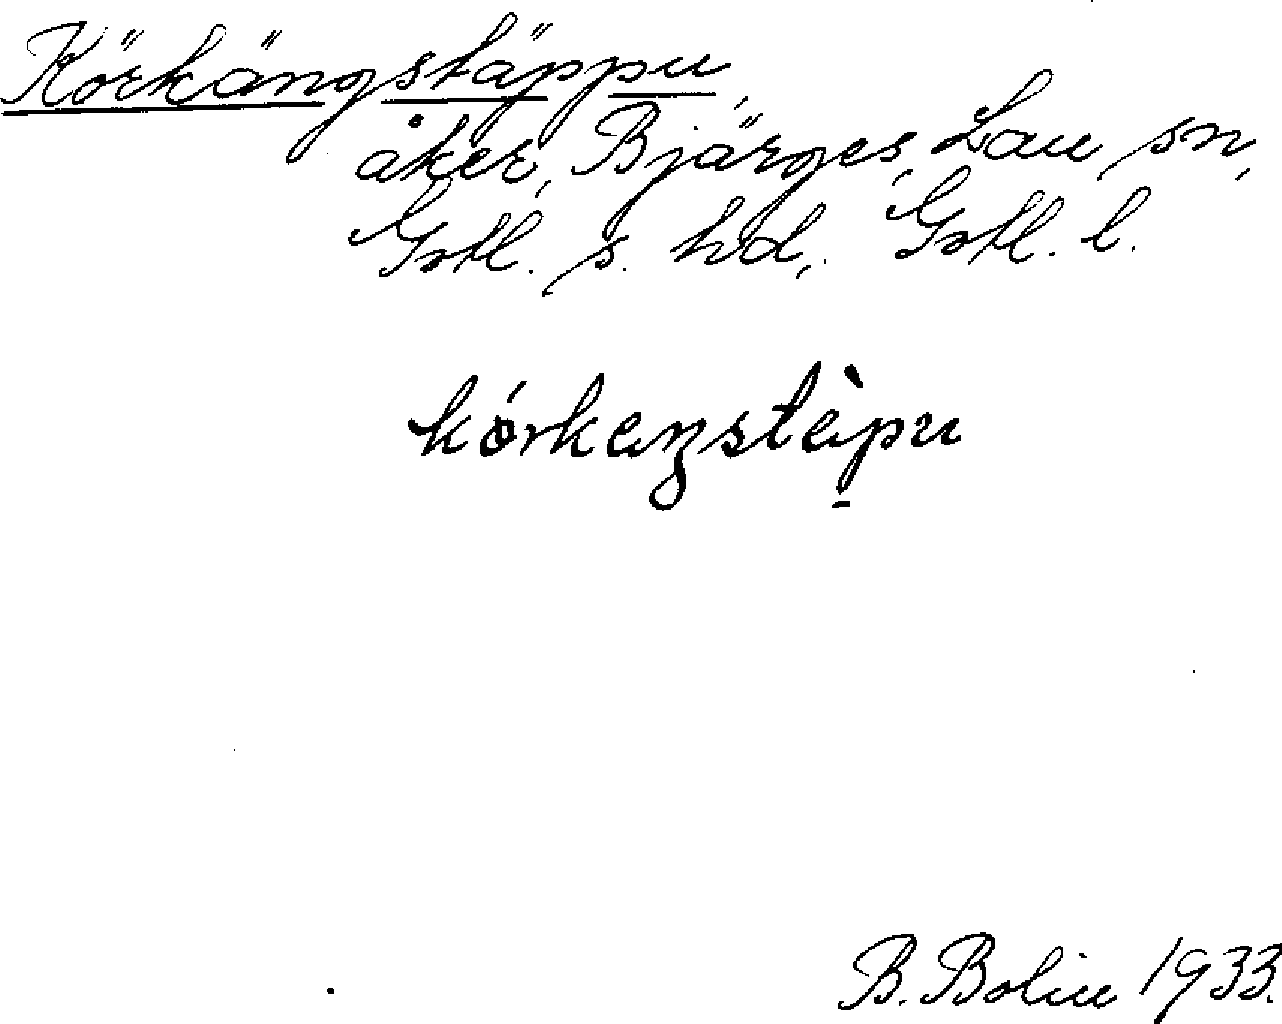 Körkängstäppu,
åker, Bjärges, Lau sn,
Gotl. s. hd, Gotl. l.
kórkeŋstèpu
B. Bolin 1933.